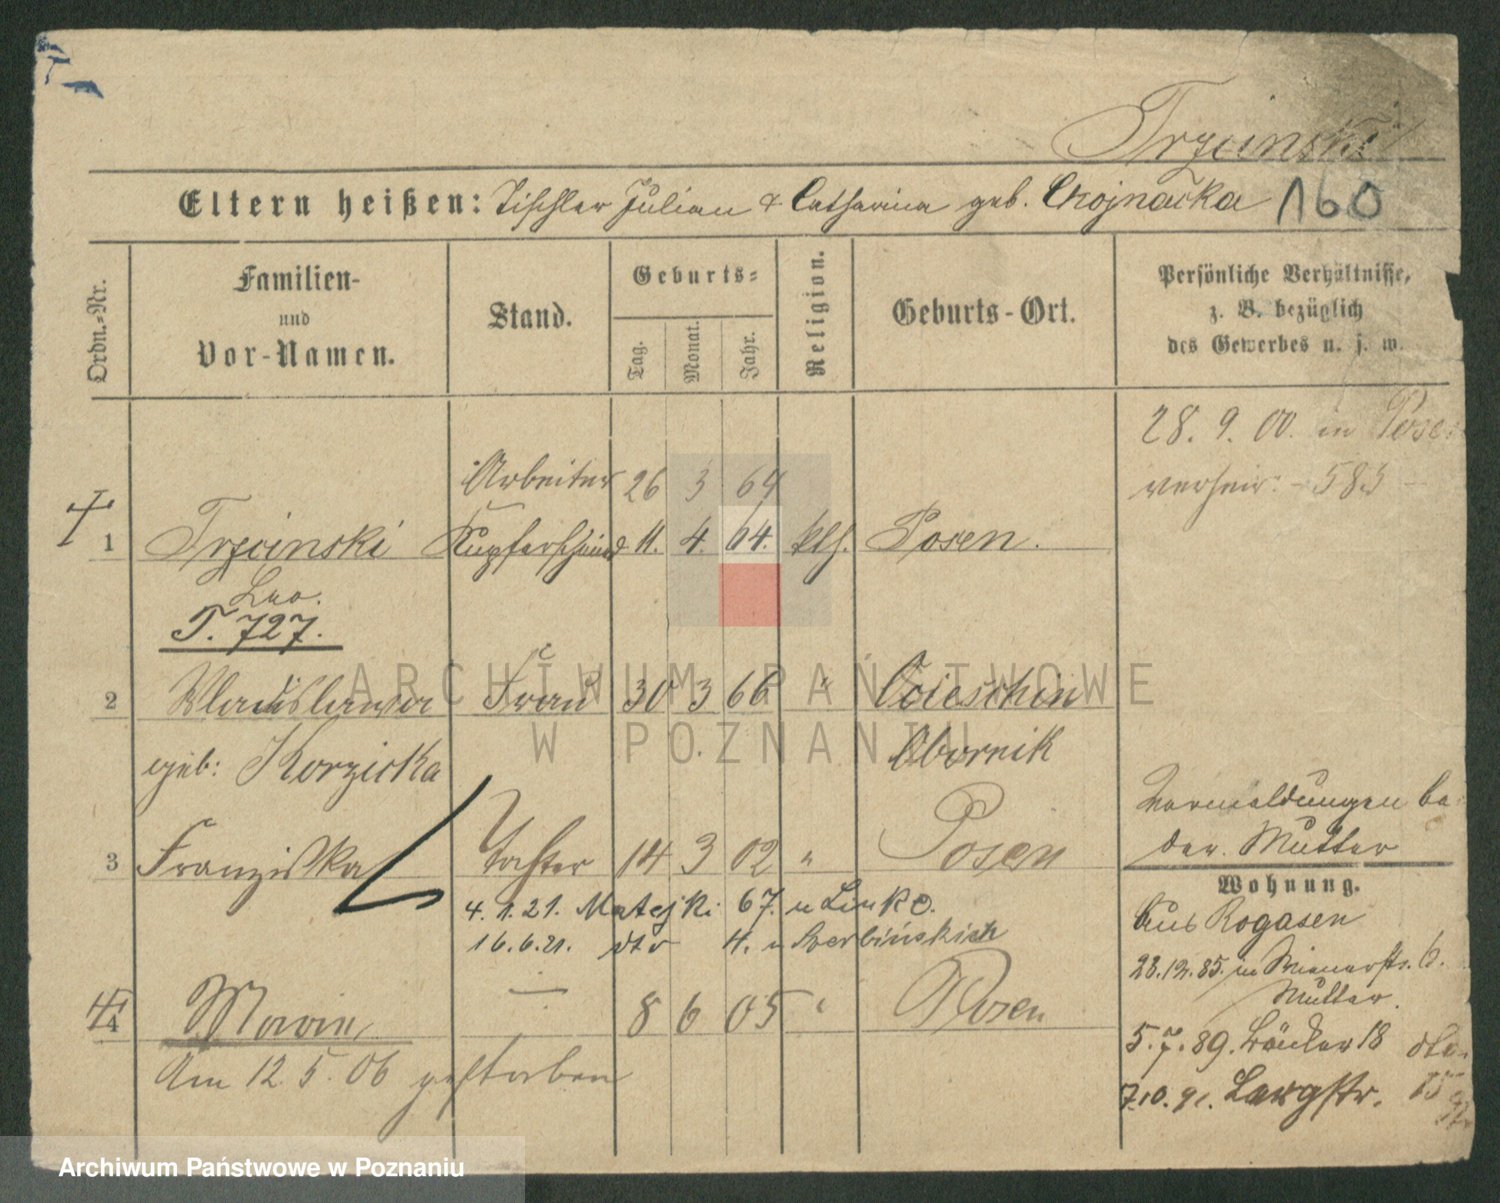 Trzcinski
Eltern heißen: Tischler Julian & Catharina geb. Chojnacka 160
Ordn.-Nr.
Familien-
und
Vor-Namen.
Stand.
Geburts-
Tag.
Monat.
Jahr.
Religion.
Geburts-Ort.
Persönliche Verhältnisse,
z. B. bezüglich
des Gewerbes u. s. w.
28. 9. 00. in Posen
verheir: - 583 -
Arbeiter 26 3 64
1 Trzcinski Kupferschmied 11. 4. 64. kth. Posen.
Leo.
T. 727.
2 Wladislawa Frau 30 3 66 " Ocieschin
geb: Korzicka Obornik
3 Franziska Tochter 14 3 02 " Posen
Vormeldungen
der Mutter
Wohnung.
4. 1. 21. Matejki 67. u Linke.
16. 6. 21. dto 4. u
Aus Rogasen
28.12.85. in Wienerstr. 6.
Mutter.
4 Marie 8 6 05 " Posen
5. 7. 89. Bäcker 18
Am 12. 5. 06 gestorben
7.10.91. Langstr.
ARCHIWUM PAŃSTWOWE
W POZNANIU
Archiwum Państwowe w Poznaniu